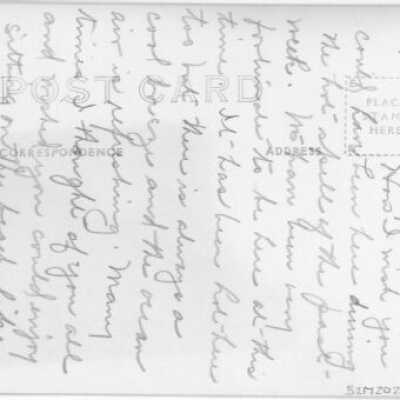 POST CARD
CORRESPONDENCE
ADDRESS
PLACE
STAMP
HERE
How I wish you
could have been here during
the hot spell of the past
week. We've been very
fortunate to be here at this
time. It has been hot here
too but there is always a
cool breeze and the ocean
air is refreshing. Many
times I thought of you all
and wished you could enjoy